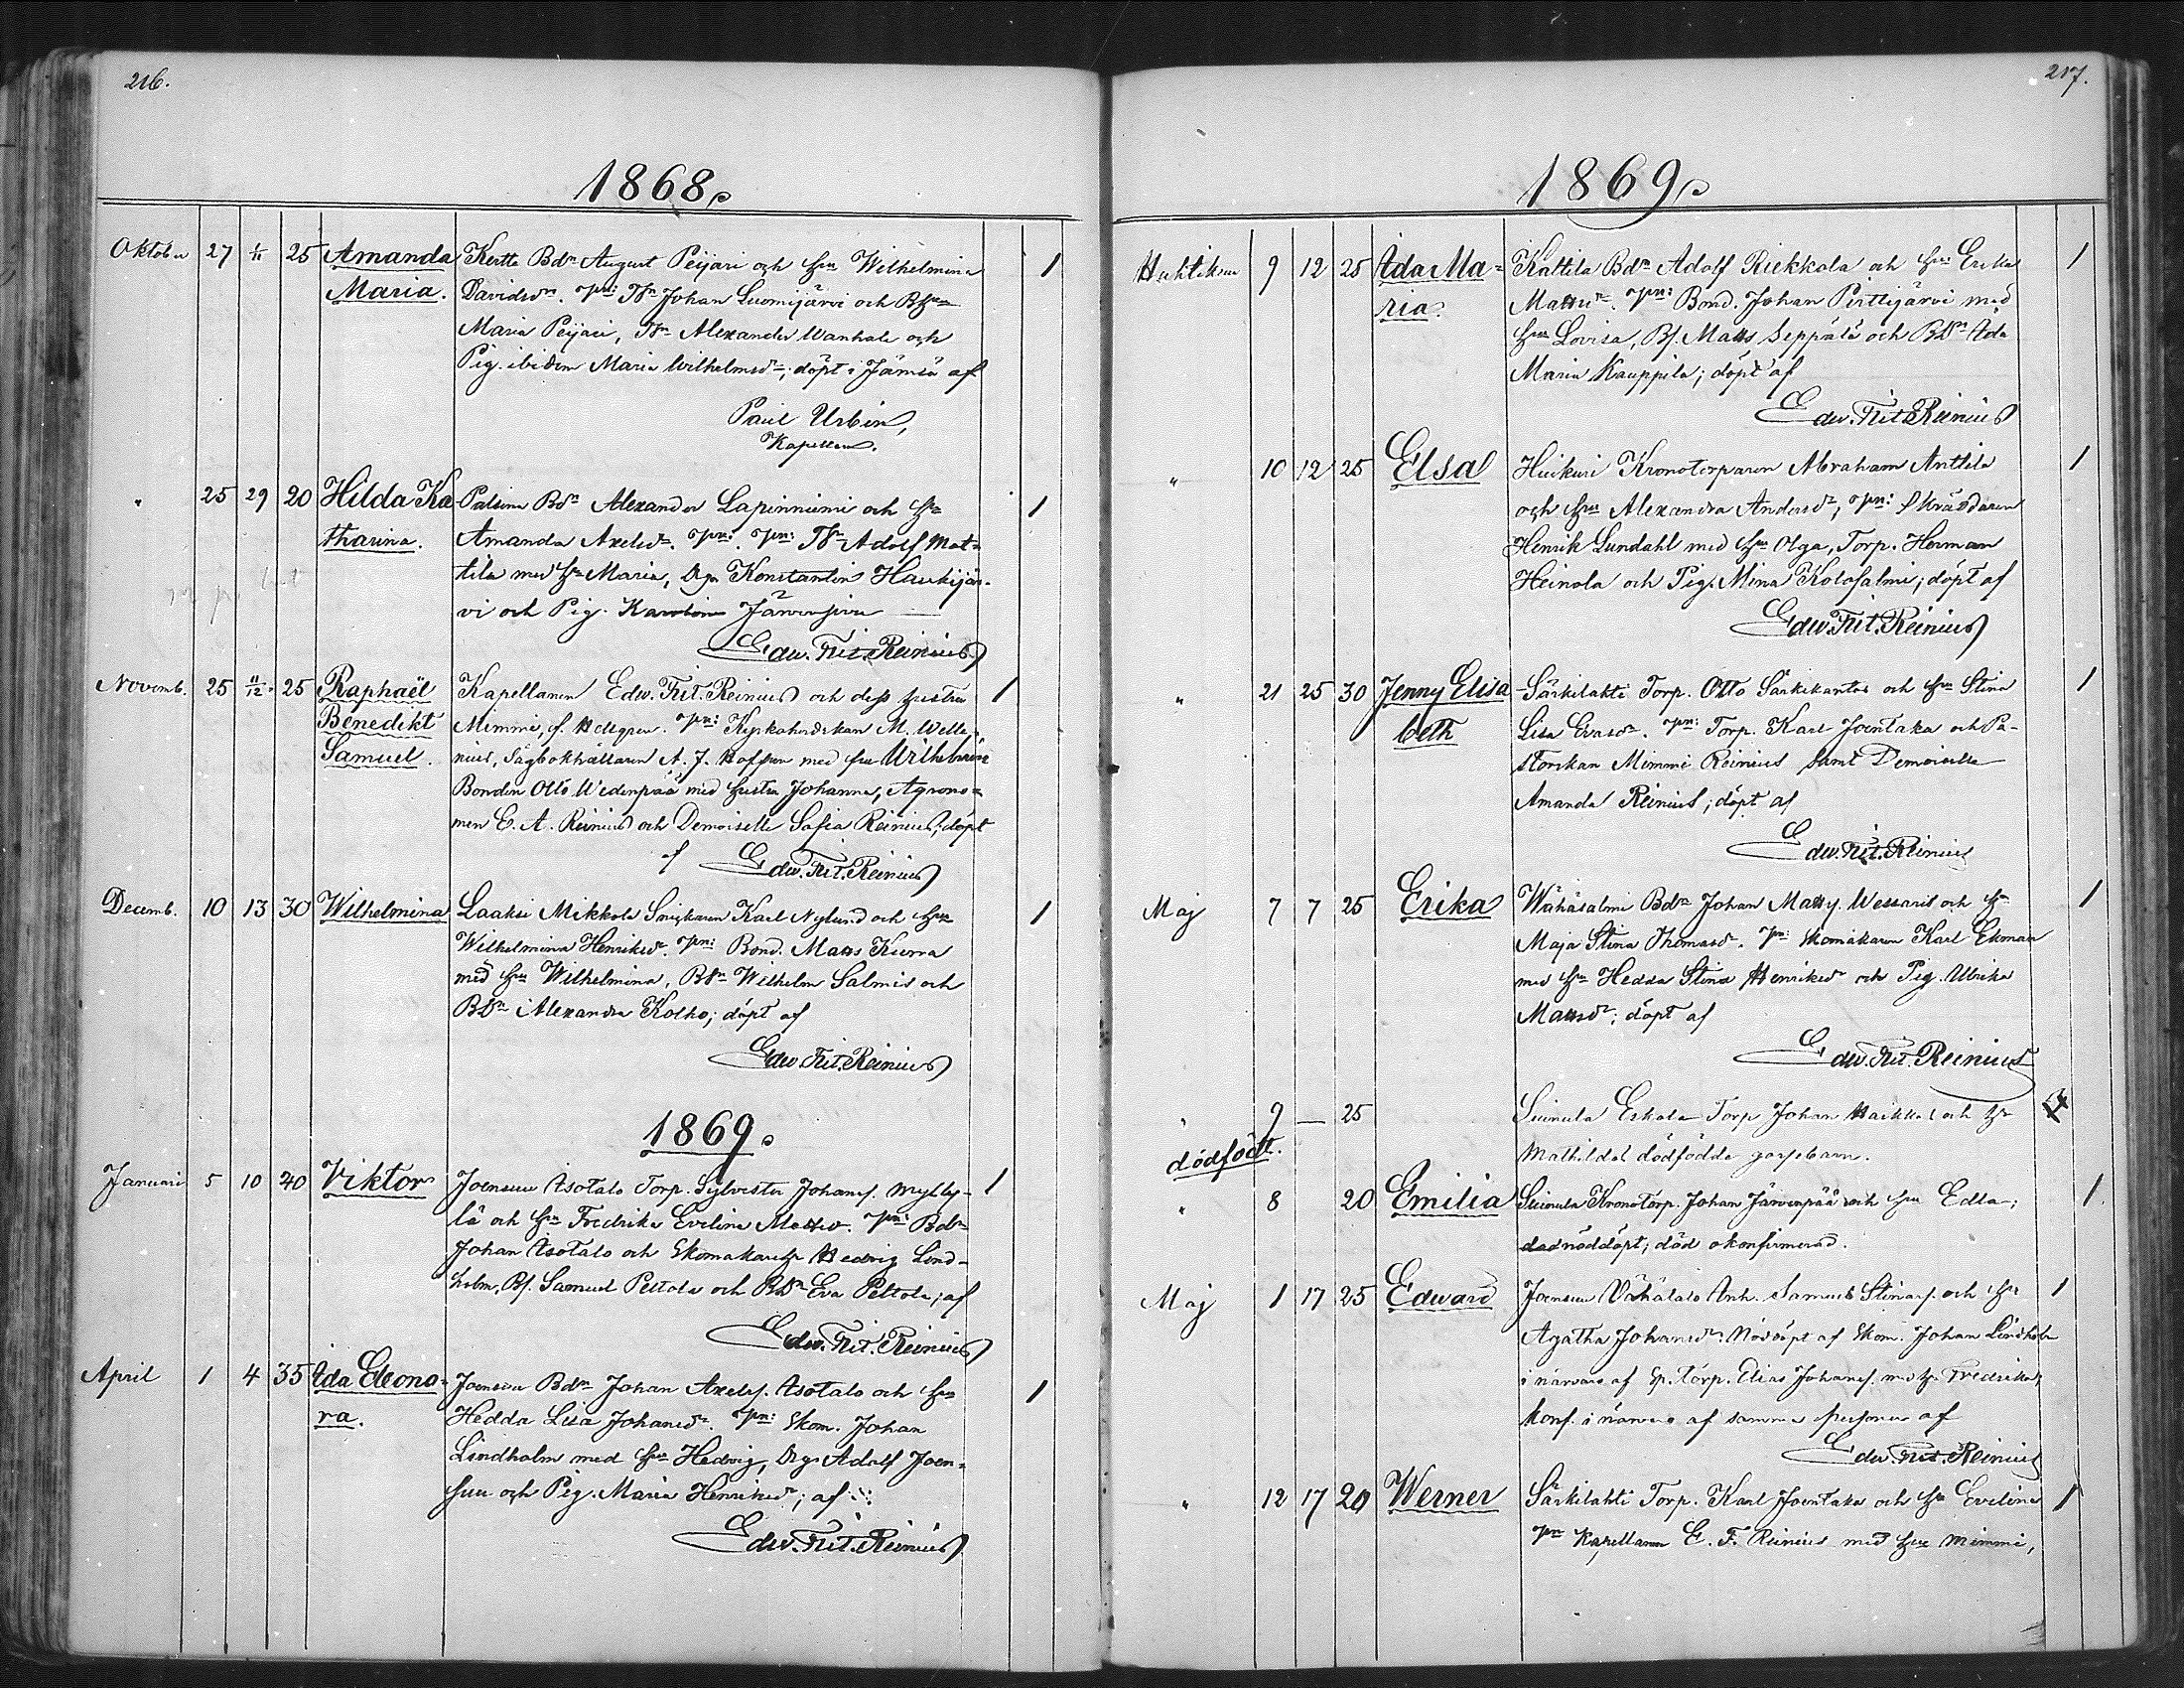 216.
1868.
Oktober 27 1/11 25 Amanda Kertte Bdn August Peijari och hu Wilhelmina
Maria. Davidsdr. Jn Johan Luomijärvi och
Maria Peijari, Alexander Wanhala och
Pig. ibidem Maria Wilhelmsdr; döpt i Jämsä af
Paul Urbin,
Kapellan.
" 25 29 20 Hilda Ka Bdn Alexander Lapinniemi och hu
tharina. Amanda Axelsdr. Adolf Mat=
tila med hu Maria, Dr. Konstantin Haukijär-
vi och Pig. Karolina
Edw. Frit. Reinius
Novemb. 25 11/12 25 Raphaël Kapellanen Edw. Frit. Reinius och dess hustru
Benedikt Mimmi, f. Hellgren. M. Welle
Samuel. nius, Sågbokhållaren A. J. Hoffren med fru Wilhelmina
Bonden Otto Wedenpää med hustru Johanna, Agrono=
men E. A. Reinius och Demoiselle Sofia Reinius; döpt
af Edw. Frit. Reinius
Decemb. 10 13 30 Wilhelmina Laaksi Mikkola Karl Nylund och hu
Wilhelmina Henriksdr. Bond. Matts Kurra
med hu Wilhelmina, Wilhelm Salmis och
Alexandra Kolho; döpt af
Edw. Frit. Reinius
1869.
Januari 5 10 40 Viktor Joensuu Isotalo Torp. Sylvester Johansf. Mylly-
lä och hu Fredrika Evelina Mattsd. Bdn
Johan Isotalo och Skomakareh. Hedvig Lind-
holm, Bs. Samuel Peltola och Bdr Eva Peltola; af
Edw. Frit. Reinius
April 1 4 35 Ida Eleono- Joensuu Bdn Johan Axelsf. Isotalo och hu
ra. Hedda Lisa Johansdr. Skom. Johan
Lindholm med hu Hedvig, Drg. Adolf Joen-
suu och Pig. Maria Henriksdr; af
Edw. Frit. Reinius
217.
1869.
Huhtikuu 9 12 25 Ida Ma- Kattila Bdn Adolf Riekkola och hu Erika
ria. Mattsdr. Bond. Johan Pirttijärvi med
hu Lovisa, Bs. Matts Seppälä och Bdr Ida
Maria Kauppila; döpt af
Edw. Frit Reinius
" 10 12 25 Elsa Huikuri Kronotorparen Abraham Anttila
och hu Alexandra Andersdr, Skräddaren
Henrik Lundahl med hu Olga, Torp. Herman
Heinola och Pig. Mina Kolosalmi; döpt af
Edw. Frit. Reinius
" 21 25 30 Jenny Elisa Särkilahti Torp. Otto Särkikantos och hu Stina
beth Lisa Evasdr. Torp. Karl Joentaka och Pa-
storskan Mimmi Reinius samt Demoiselle
Amanda Reinius; döpt af
Edw. Frit. Reinius
Maj 7 7 25 Erika Wähäsalmi Bdn Johan Wessaris och hu
Maja Stina Thomasdr. Skomakaren Karl Ekman
med hu Hedda Stina Henriksdr och Pig. Ulrika
Mattsdr; döpt af
Edw. Frit. Reinius
" 9 — 25 Suinula Eskola Torp Johan och hu
dödfödt. Mathildas dödfödda gossebarn.
" 8 20 Emilia Suinula Kronotorp. Johan Järvenpää och hu Edla;
nöddöpt; död okonfirmerad.
Maj 1 17 25 Edward Joensuu Vähätalo Inh. Samuel Stinasf. och hu
Agatha Johansdr. Nöddöpt af Skom. Johan Lindholm
i närvaro af Torp. Elias Johansf. med h. Fredrika,
Konf. i närvaro af samma personer af
Edw. Frit. Reinius
" 12 17 20 Werner Särkilahti Torp. Karl Joentaka och hu Evelina
Kapellanen E. F. Reinius med hu Mimmi,